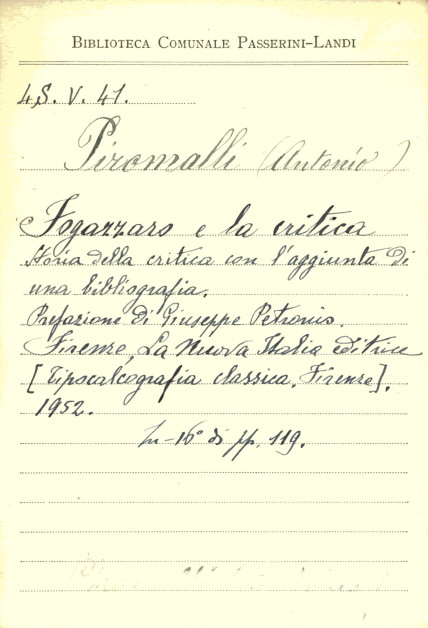 BIBLIOTECA COMUNALE PASSERINI-LANDI
4S. V. 41.
Piromalli (Antonio)
Fogazzaro e la critica
Storia della critica con l'aggiunta di
una bibliografia.
Prefazione di Giuseppe Petronio.
Firenze, La Nuova Italia editrice
[Tipocalcografia classica. Firenze].
1952.
In-16° di pp. 119.